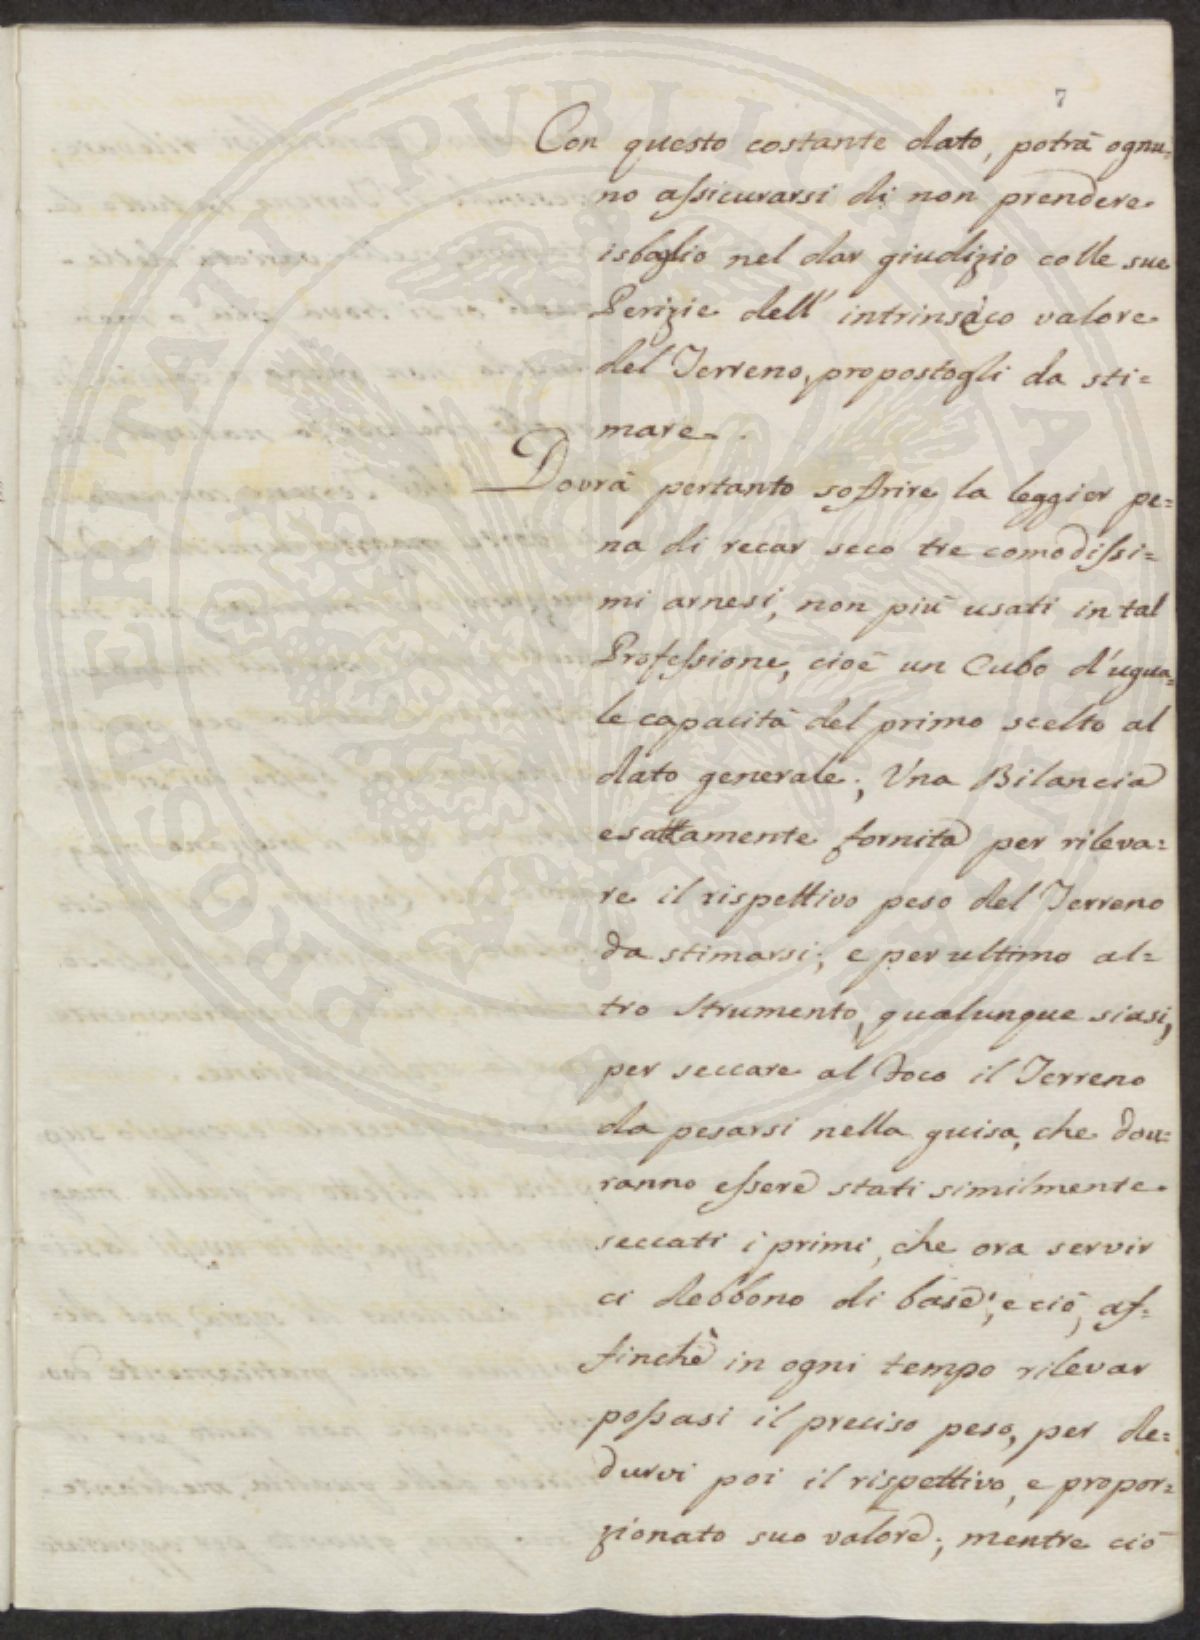 7
Con questo costante dato, potrà ognu-
no assicurarsi di non prendere
isbaglio nel dar giudizio colle sue
Perizie dell' intrinseco valore
del Terreno, propostogli da sti=
mare.
Dovrà pertanto soffrire la leggier pe=
na di recar seco tre comodissi=
mi arnesi, non più usati in tal
Professione, cioè un Cubo d'ugua=
le capacità del primo scelto al
dato generale; Una Bilancia
esattamente fornita per rileva=
re il rispettivo peso del Terreno
da stimarsi; e per ultimo al=
tro Strumento, qualunque siasi,
per seccare al foco il Terreno
da pesarsi nella guisa, che dov=
ranno essere stati similmente
seccati i primi, che ora servir
ci debbono di base; e ciò, af=
finchè in ogni tempo rilevar
possasi il preciso peso, per de=
durvi poi il rispettivo, e propor=
zionato suo valore; mentre ciò
PROSPERITATI PUBLICAE AUGENDAE